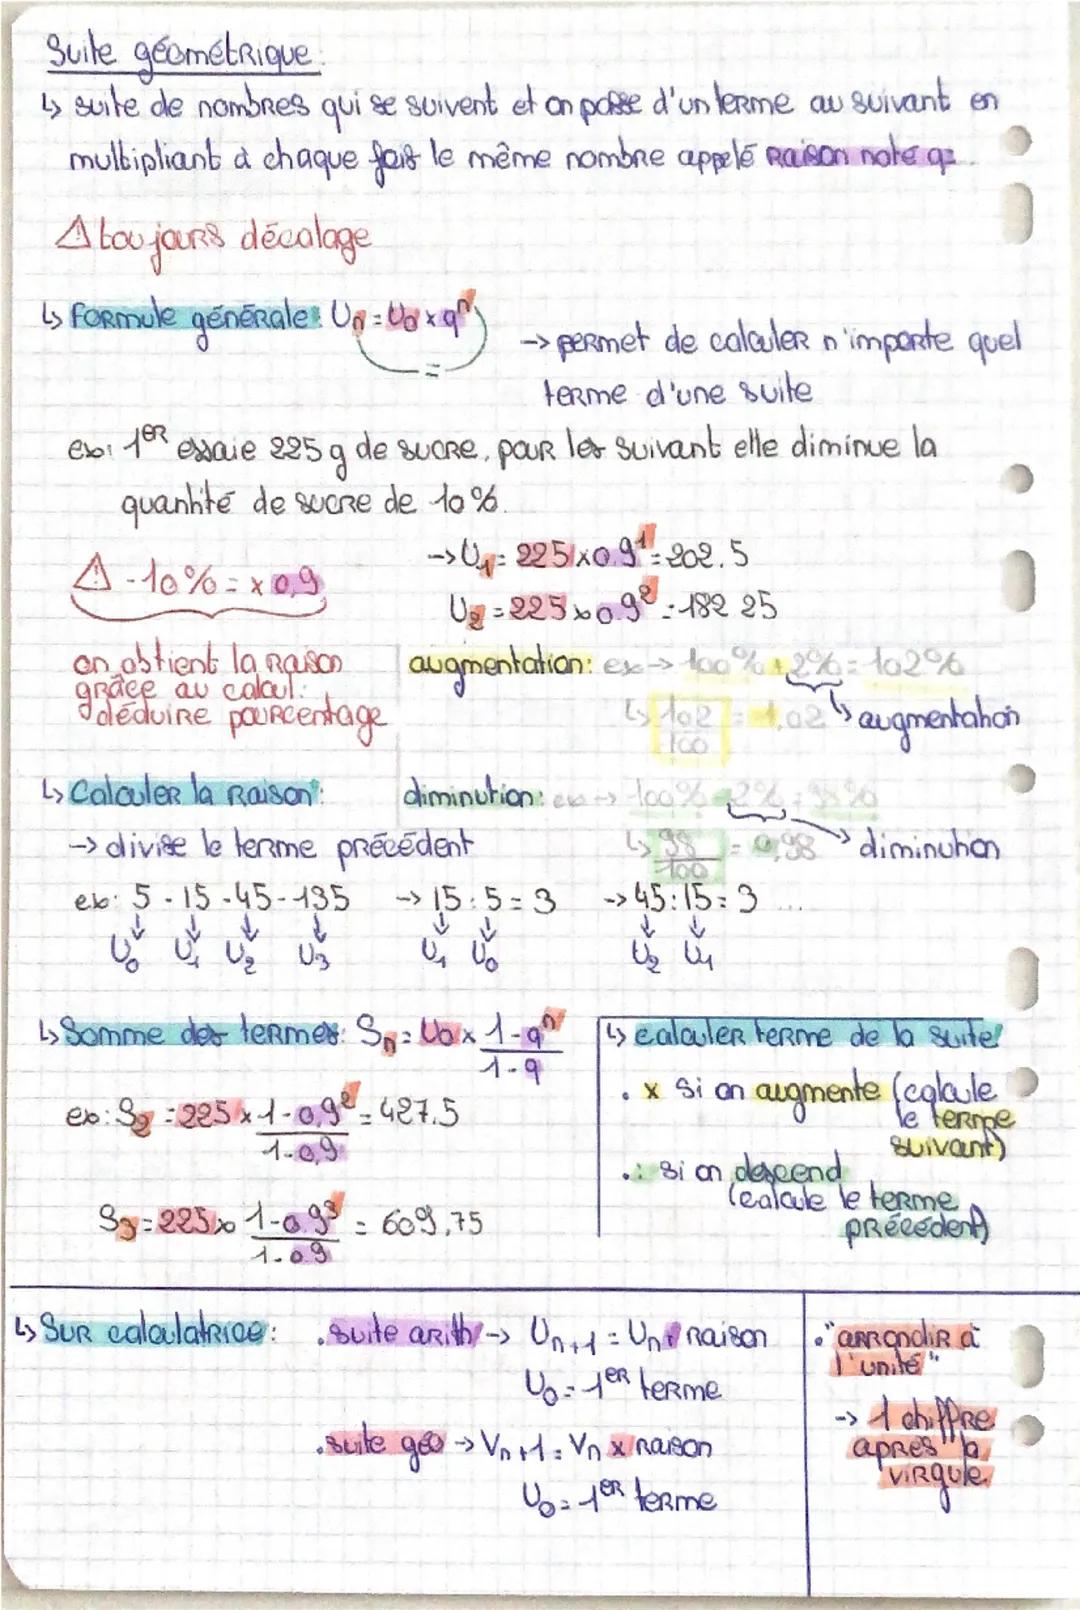 Suite géométrique:
↳ suite de nombres qui se suivent et on passe d'un terme au suivant en
multipliant à chaque fois le même nombre appelé raison noté q=
⚠ toujours décalage
↳ Formule générale: Un = U0 x qⁿ
=
→ permet de calculer n'importe quel
terme d'une suite
ex: 1er essaie 225 g de sucre, pour les suivant elle diminue la
quantité de sucre de 10%.
⚠ -10% = x 0,9
→ U1 = 225 x 0.9¹ = 202.5
U2 = 225 x 0.9² = 182 25
on obtient la raison
grâce au calcul:
déduire pourcentage
augmentation: ex → 100% + 2% = 102%
↳ 102/100 = 1,02 ↳ augmentation
↳ Calculer la raison:
diminution: ex → 100% - 2% = 98%
↳ 98/100 = 0,98 → diminution
→ divise le terme précédent
ex: 5 - 15 - 45 - 135 → 15 : 5 = 3 → 45 : 15 = 3 ...
U0 U1 U2 U3 U1 U0 U2 U1
↳ Somme des termes: Sn = U0 x (1-qⁿ)/(1-q)
ex: S2 = 225 x (1-0,9²)/(1-0,9) = 427.5
S3 = 225 x (1-0.9³)/(1-0.9) = 609,75
↳ calculer terme de la suite!
. x si on augmente (calcule
le terme
suivant)
. : si on descend
(calcule le terme
précédent)
↳ Sur calculatrice:
. suite arith → Un+1 = Un + raison
U0 = 1er terme
. suite géo → Vn+1 = Vn x raison
U0 = 1er terme
. "arrondir à
l'unité"
→ 1 chiffre
après la
virgule.